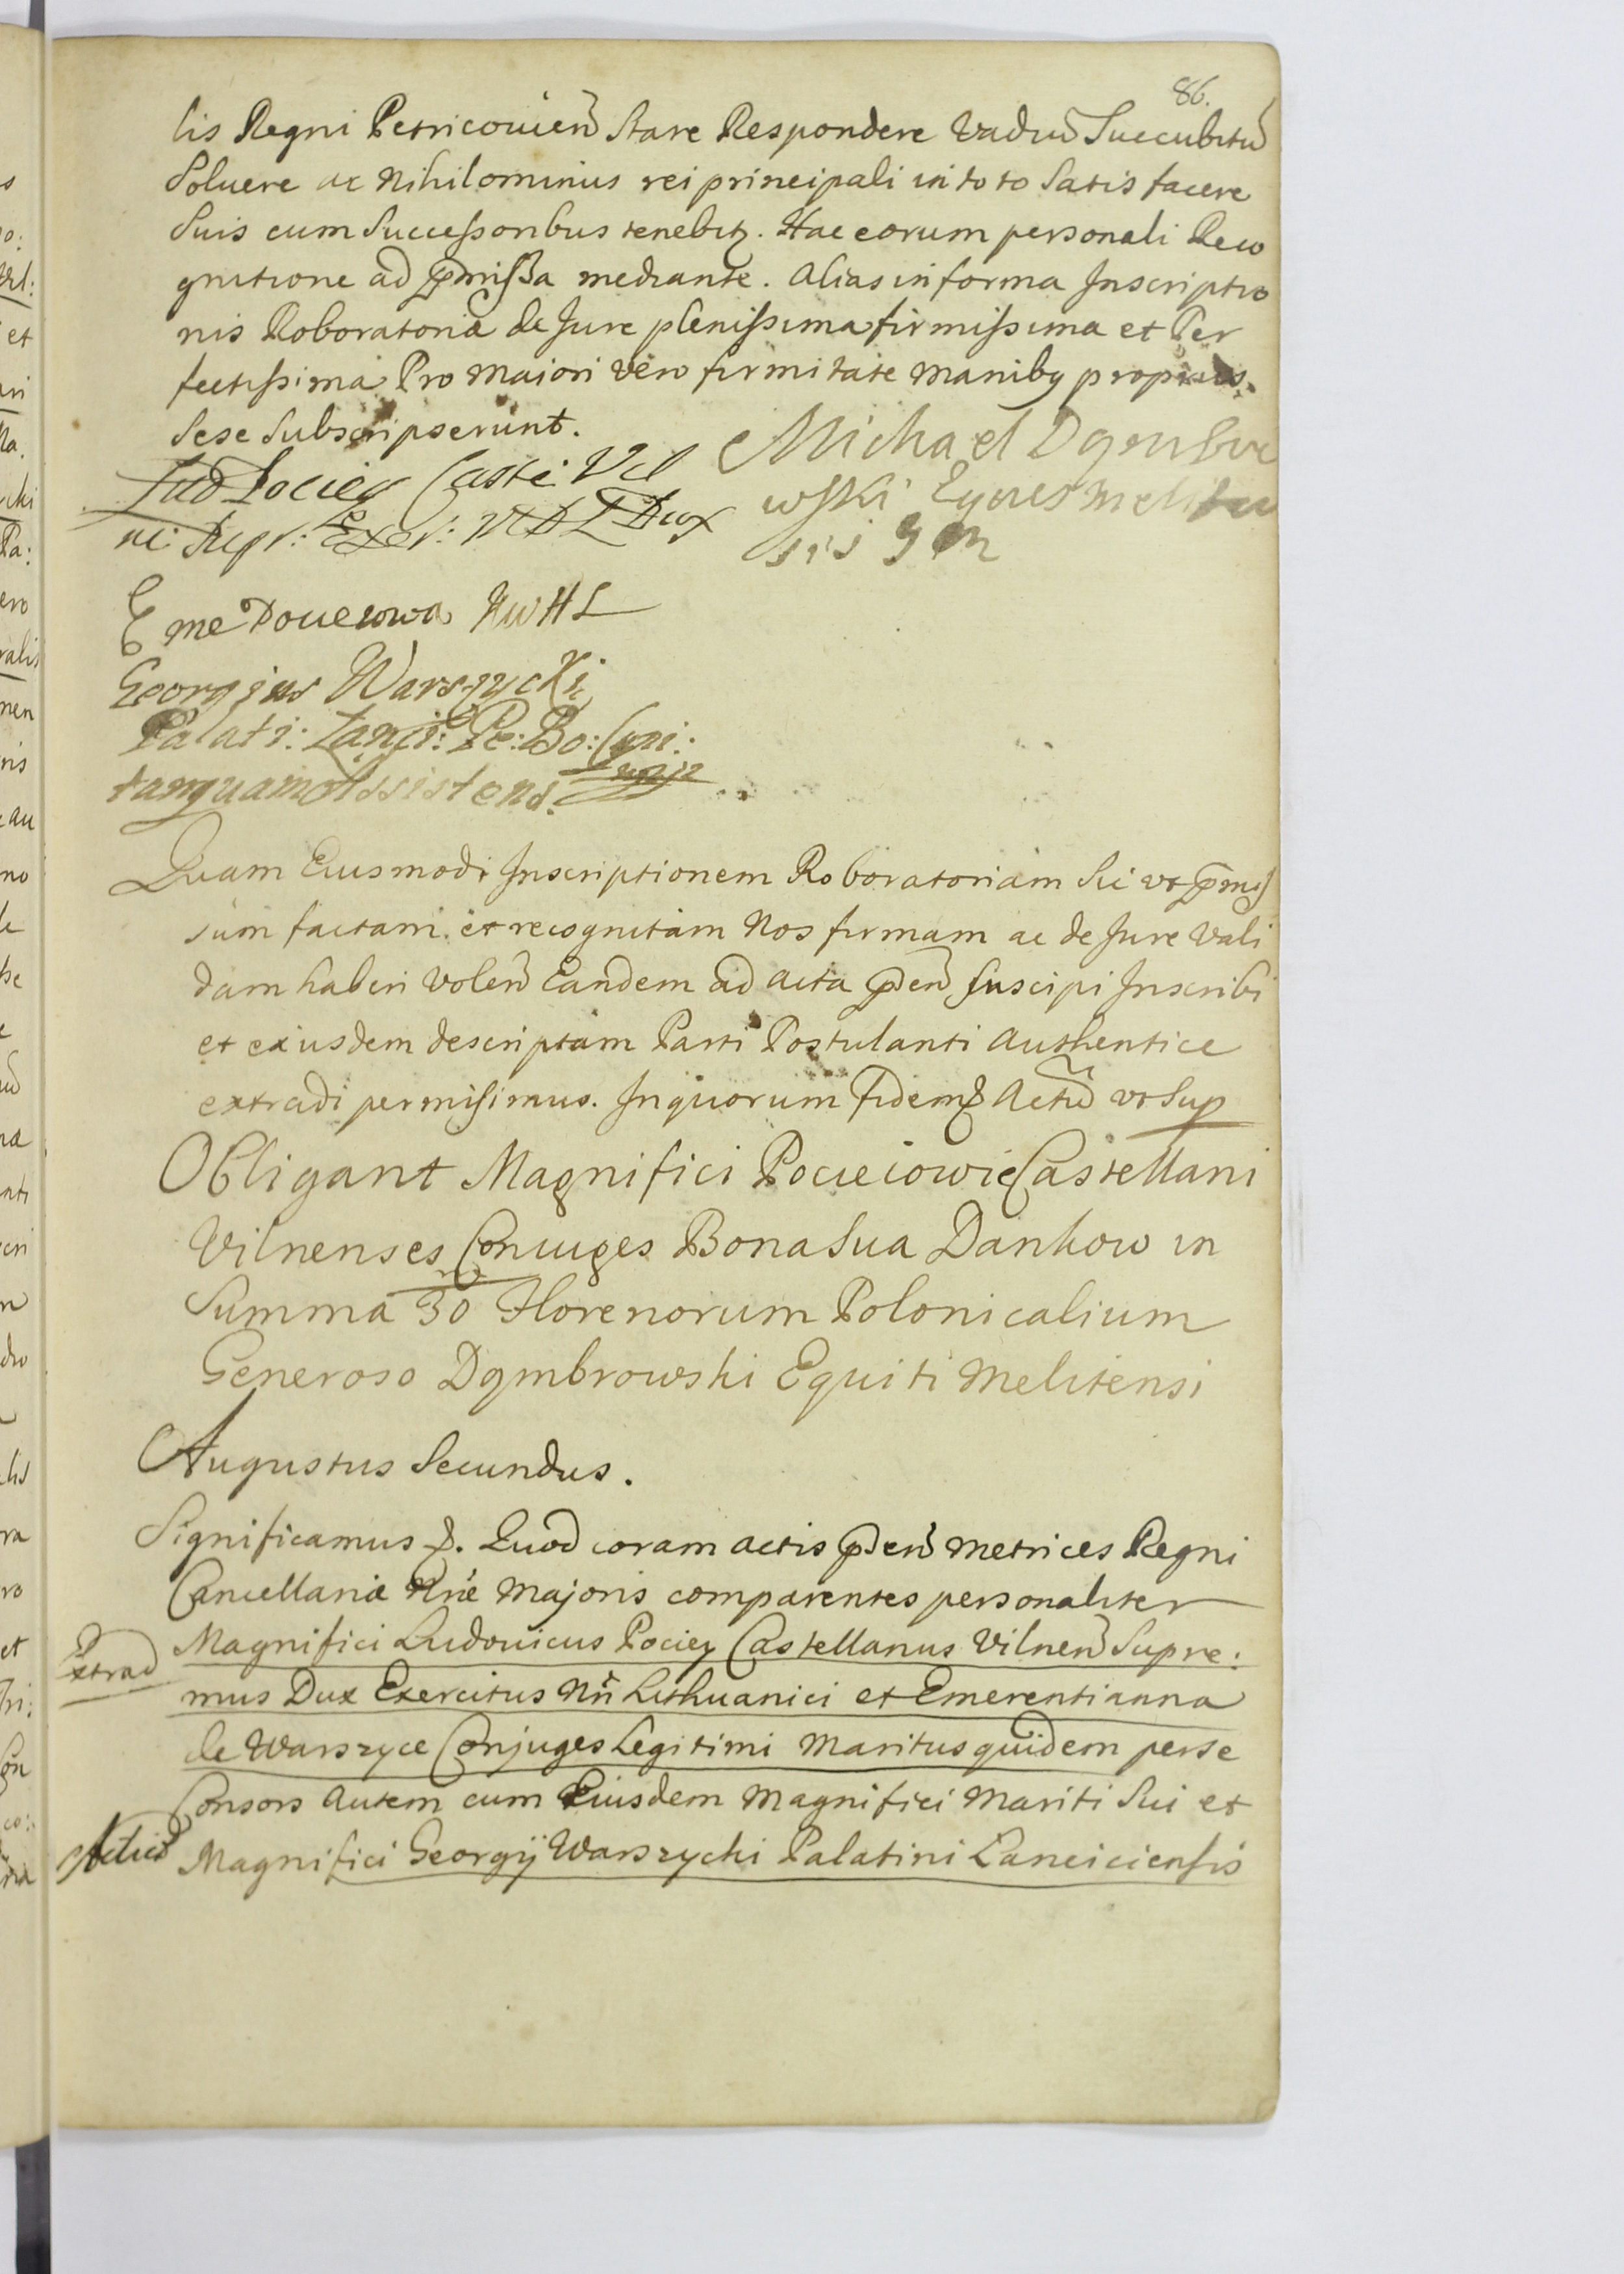 86.
lis Regni Petricouien̄ Stare Respondere Vadiū Succubitū
Soluere ac Nihilominus rei principali in toto Satis facere
Suis cum Successoribus tenebitꝫ. Hac eorum personali Reco
gnitione ad p̄missa mediante. Alias in forma Inscriptio
nis Roboratoriæ de Jure plenissima firmissima et Per
fectissima Pro Maiori Vero firmitate Manibꝫ proprijs.
Sese Subscripserunt.
Lud Pociey Caste Vil
Supr: Exer: WDL Dux
Michael Dgembro
wski Eques Melite
sis
Eme Pocieiowa KWHL
Georgius Warszycki
Palati: Lanci: Pe: Bo: Cpi:
tanquam Assistens
Quam Eiusmodi Inscriptionem Roboratoriam Sic vt p̄mis
sum factam et recognitam Nos firmam ac de Jure Vali
dam haberi Volen̄ Eandem ad acta p̄den̄ Suscipi Inscribi
et eiusdem descriptam Parti Postulanti Authentice
extradi permisimus. In quorum fidem & Actū vt Sup
Obligant Magnifici Pocieiowie Castellani
Vilnenses Coniuges Bona Sua Dankow in
Summa 30 Florenorum Polonicalium
Generoso Dgmbrowski Equiti Melitensi
Augustus Secundus.
Significamus &. Quod coram actis p̄den̄ Metrices Regni
Cancellariæ Nræ Majoris comparentes personaliter
Extrad
Magnifici Ludouicus Pociey Castellanus Vilnen̄ Supre:
mus Dux Exercitus Nri Lithuanici et Emerentianna
de Warszyce Conjuges Legitimi Maritus quidem per se
Consors Autem cum Eiusdem Magnifici Mariti Sui et
Magnifici Georgij Warszycki Palatini Lanciciensis